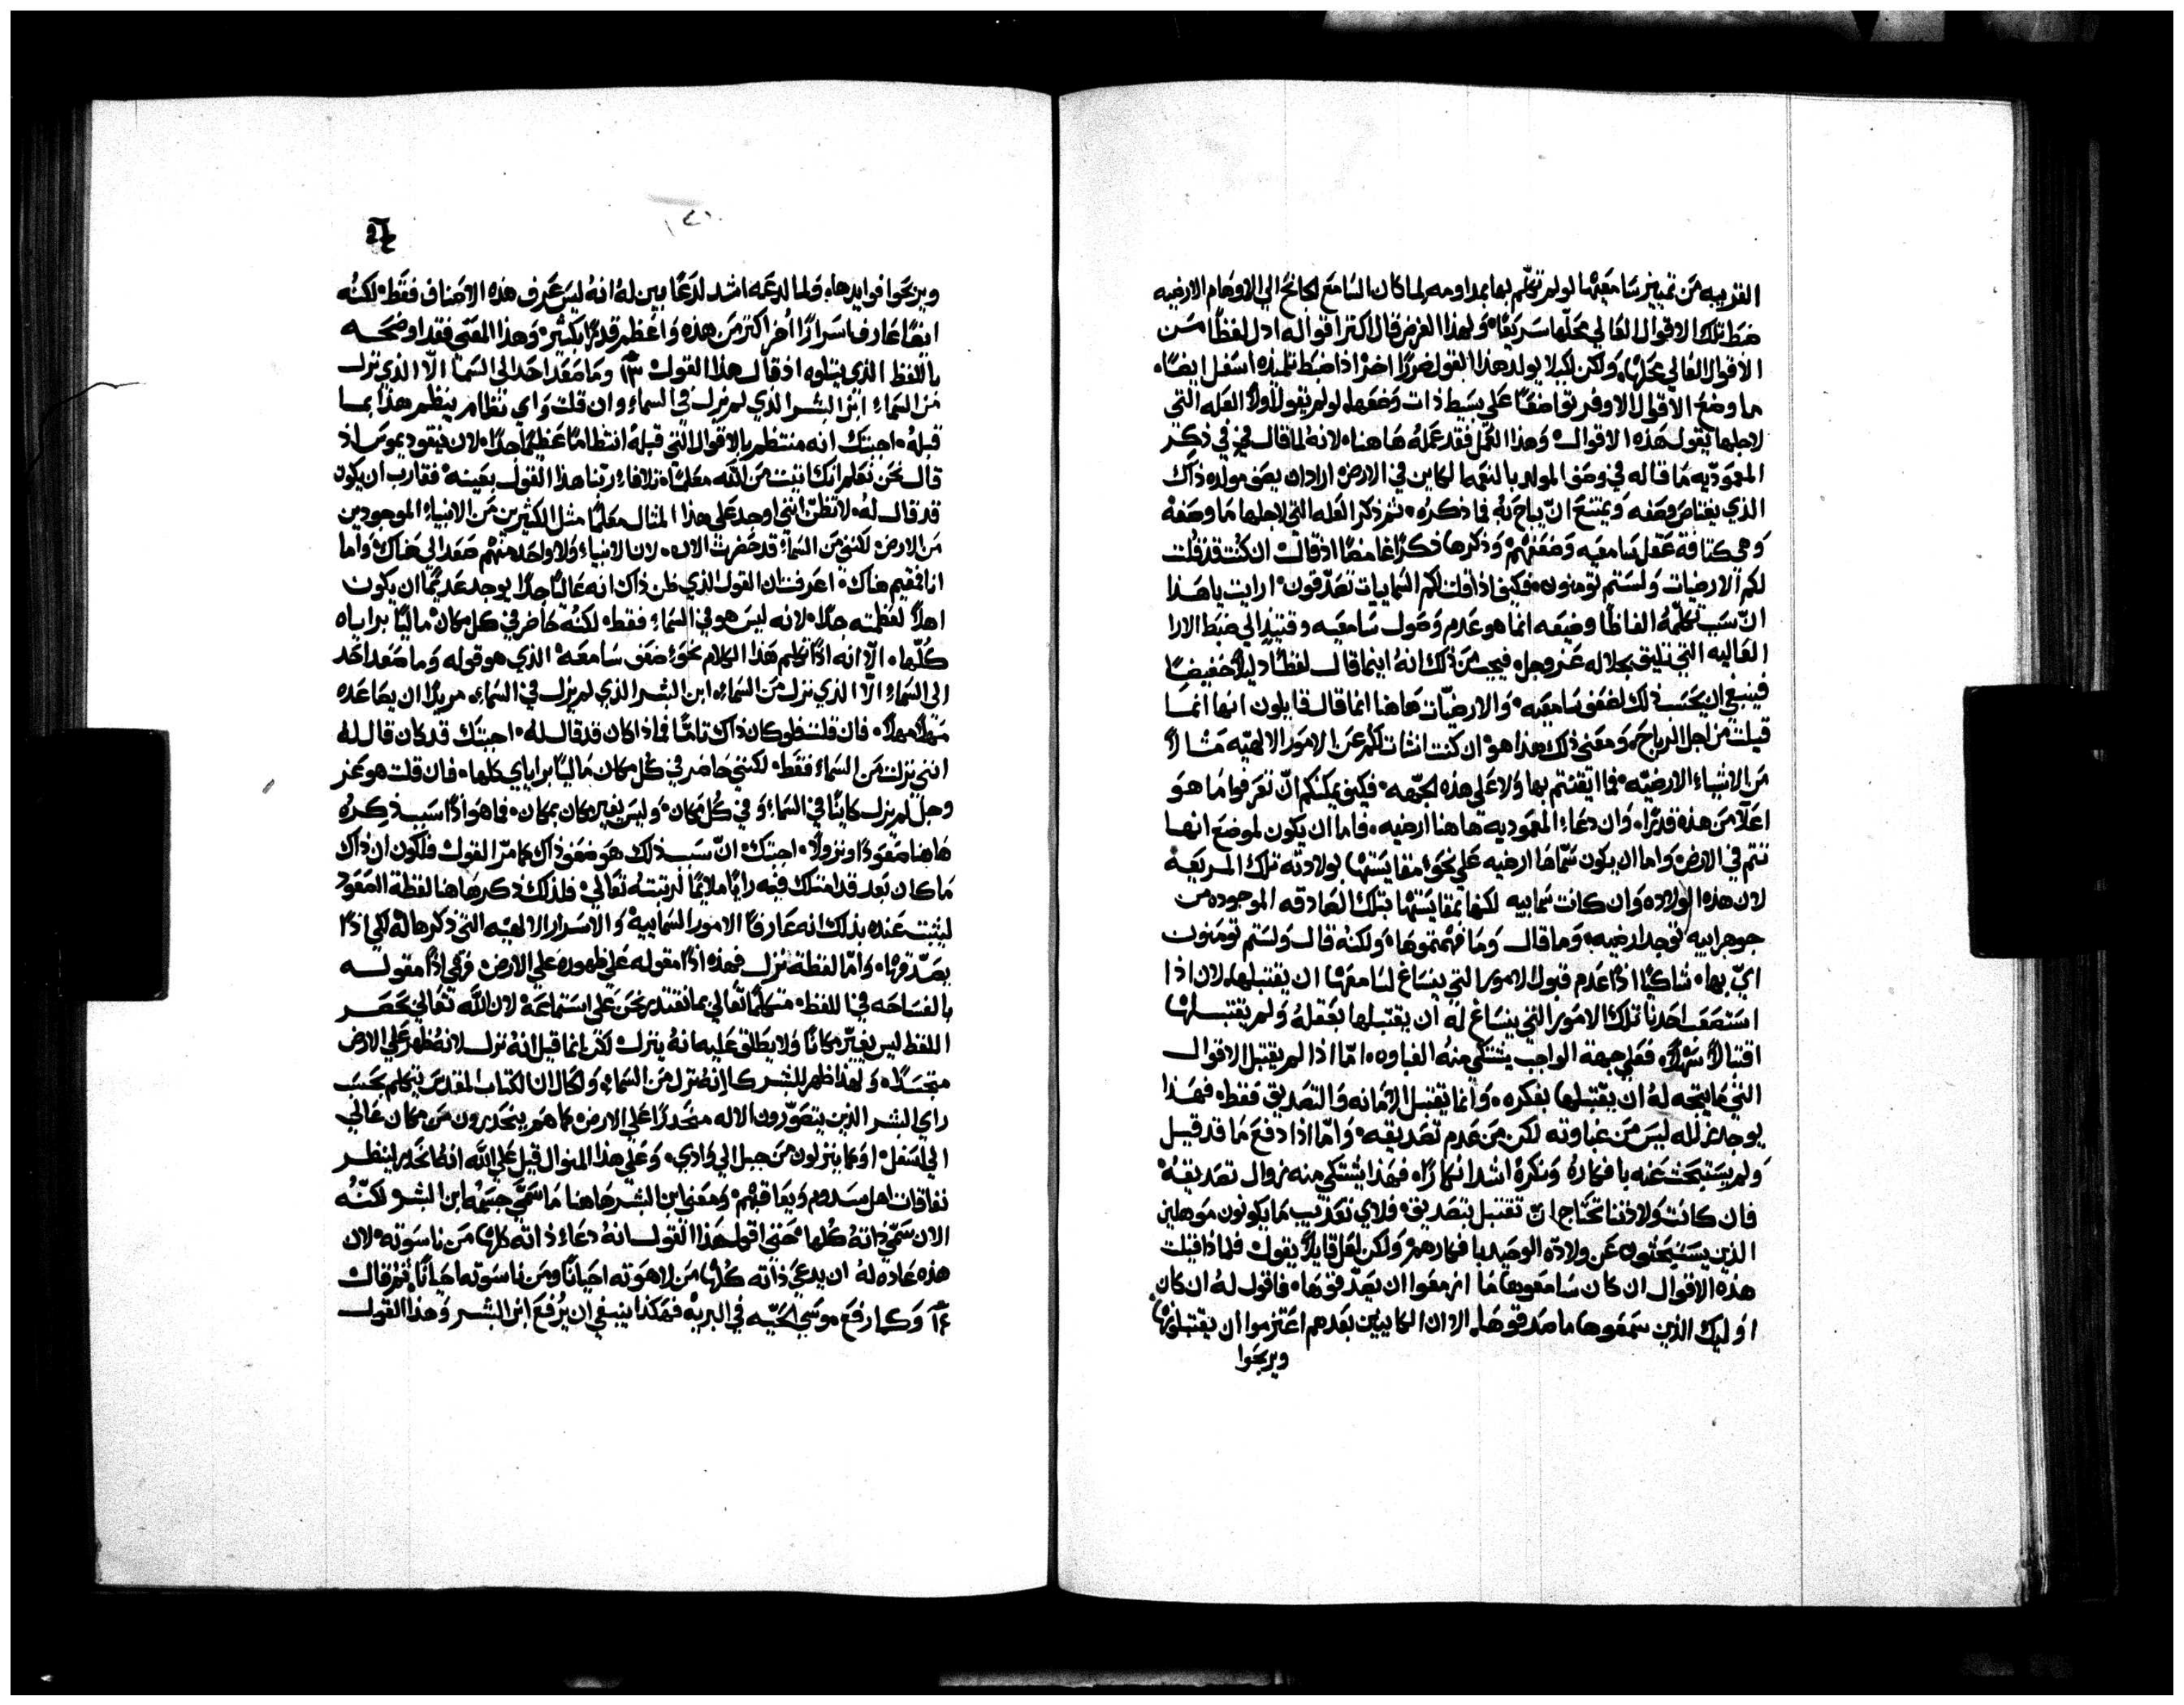 القريبه من تمييز سامعيها لو لم تكلم بها بمداومه لما كان السامع الجانح الي الاوهام الارضيه
ضبط تلك الاقوال العالي محلها سريعًا، ولهذا الغرض قال اكثر اقواله ادل لفظًا من
الاقوال العالي محلها، ولكن لكيلا يولد هذا القول ضررًا اخر اذا ضبط تلميذه اسفل ايضًا،
ما وضع الاقوال الاوفر تواضعًا علي بسيط ذات وضعها، لو لم يقول اولًا العله التي
لاجلها يقول هذه الاقوال وهذا العمل فقد عمله هاهنا، لانه لما قال في ذكر
المعموديه ما قاله في وصف المولد بالنعمه الكاين في الارض اراد ان يصف مولده ذاك
الذي يغتاص وصفه ويمتنع ان يباح به فما ذكره، ثم ذكر العله التي لاجلها ما وصفه
وهي كثافة عقل سامعيه وضعفهم وذكرها ذكرًا غامضًا اذ قال ان كنت قد قلت
لكم الارضيات ولستم تومنون، فكيف اذا قلت لكم السماييات تصدقون، ارايت يا هذا
ان سبب تكلمه الفاظًا وضيعه انما هو عدم وصول سامعيه وقتيذٍ الي ضبط الارا
العاليه التي تليق بجلاله عز وجل، فيجب من ذلك انه اينما قال لفظًا ذليلًا خفيضًا
فينبغي ان يحسب ذلك لضعف سامعيه، والارضيات هاهنا انما قال قايلون انها انما
قيلت من اجل الرياح، ومعني ذلك هذا هو، ان كنت انشات لكم عن الامور الالهيه مثالًا
من الاشياء الارضيه، فما اتقنتم بها ولا علي هذه الجهه، فكيف يمكنكم ان تعرفوا ما هو
اعلا من هذه قدرًا، وان دعاء المعموديه هاهنا ارضيه، فاما ان يكون لموضع انها
تتم في الارض، واما ان يكون سماها ارضيه علي نحو مقايستها بولادته تلك المريعه
لان هذه الولاده وان كانت سماييه لكنها بمقايستها بتلك الصادقه الموجوده من
جوهر ابيه توجد ارضيه، وما قال وما فهمتموها، ولكنه قال ولستم تومنون
اي بها، شاكيًا اذًا عدم قبول الامور التي ينساغ لسامعها ان يقتبلها، لان اذا
استصعب احدنا تلك الامور التي ينساغ له ان يقتبلها بعقله ولم يقتبلها
اقتبالًا سهلًا، فعلي جهة الواجب يشتكي منه الغباوه، اما اذا لم يقتبل الاقوال
التي ما يتجه له ان يقتبلها بفكره، وانما يقتبل الامانه والتصديق فقط، فهذا
يوجد ثلله ليس من غباوته لكن من عدم تصديقه، واما اذا دفع ما قد قيل
ولم يستبحث عنه بافكاره ونكره اشد انكارًا، فهذا يشتكي منه زوال تصديقه
فان كانت ولادتنا تحتاج ان تقتبل بتصديق، فلاي تعذيب ما يكونون موهلين
الذين يستبحثون عن ولادة الوحيد بافكارهم، ولكن لعل قايلًا يقول فلماذا قيلت
هذه الاقوال ان كان سامعوها ما ازمعوا ان يصدقوها، فاقول له ان كان
اوليك الذين سمعوها ما صدقوها، الا ان الكاينين بعدهم اعتزموا ان يقتبلونها
ويربحوا
١٤١
ويربحوا فوايدها، ولما لدعه اشد لدعًا بين له انه ليس عرف هذه الاصناف فقط، لكنه
ايضًا عارف اسرارًا أخر اكثر من هذه واعظم قدرًا بكثير، وهذا المعني فقد اوضحه
باللفظ الذي يتلوه اذ قال هذا القول ١٣ وما صعد احد الي السما الا الذي نزل
من السماء ابن البشر الذي لم يزل في السماء، وان قلت واي نظام ينظم هذا بما
قبله، اجبتك انه منتظم بالاقوال التي قبله انتظامًا عظيمًا جدًا، لان نيقوديموس اذ
قال نحن نعلم انك اتيت من الله معلمًا، تلافاء ربنا هذا القول بعينه، فقارب ان يكون
قد قال له، لا تظن انني اوجد علي هذا المثال معلمًا مثل الكثيرين من الانبياء الموجودين
من الارض، لكنني من السماء قد حضرت الان، لان الانبياء ولا واحد منهم صعد الي هناك، واما
انا فمقيم هناك، اعرفت ان القول الذي ظن ذاك انه عاليًا جدًا يوجد عديمًا ان يكون
اهلًا لعظمته جدًا، لانه ليس هو في السماء فقط، لكنه حاضر في كل مكان ماليًا براياه
كلها، الا انه اذًا تكلم هذا الكلام نحو ضعف سامعه، الذي هو قوله وما صعد احد
الي السماء الا الذي نزل من السماء، ابن البشر الذي لم يزل في السماء، مريدًا ان يصاعده
مهلًا مهلًا، فان قلت فلو كان ذاك تامًا فماذا كان قد قال له، اجبتك قد كان قال له
انني نزلت من السماء فقط، لكنني حاضر في كل مكان ماليًا براياي كلها، فان قلت هو عز
وجل لم يزل كاينًا في السماء، وفي كل مكان، وليس يغير مكان بمكان، فما هو اذًا سبب ذكره
هاهنا صعودًا ونزولًا، اجبتك ان سبب ذلك هو ضعف ذاك كما مر القول، فلكون ان ذاك
ما كان بعد قد امتلك فيه رايًا ملايمًا لرتبته تعالي، فلذلك ذكر هاهنا لفظة الصعود
ليثبت عنده بذلك انه عارفًا الامور السماييه، والاسرار الالهيه التي ذكرها له لكي اذًا
يصدقها، واما لفظة نزل فهذه اذًا مقوله علي ظهوره علي الارض، فهي اذًا مقوله
بالفساحه في اللفظ، متكلمًا تعالي بما نقتدر نحن علي استماعه، لان الله تعالي بحصر
اللفظ ليس يغير مكانًا ولا يطلق عليه انه ينزل، لكن انما قيل انه نزل لانه ظهر علي الارض
متجسدًا، ولهذا ظهر للبشر كانه نزل من السماء، ولحال ان الكتاب المقدس يتكلم بحسب
راي البشر الذين يتصورون الاله منحدرًا علي الارض كما هم ينحدرون من مكان عالي
الي اسفل، او كما ينزلون من جبل الي وادي، وعلي هذا المنوال قيل علي الله انه انحدر لينظر
نفاقات اهل سدوم ويعاقبهم، ومعني ابن البشر هاهنا ما سمي جسمه ابن البشر لكنه
الان سمي ذاته كلها، حتي اقول هذا القول انه دعاء ذاته كلها من ناسوته، لان
هذه عاده له ان يدعي ذاته كلها من لاهوته احيانًا ومن ناسوته احيانًا، ثم قال
١٤ وكما رفع موسي الحيه في البريه، فهكذا ينبغي ان يُرفع ابن البشر، وهذا القول